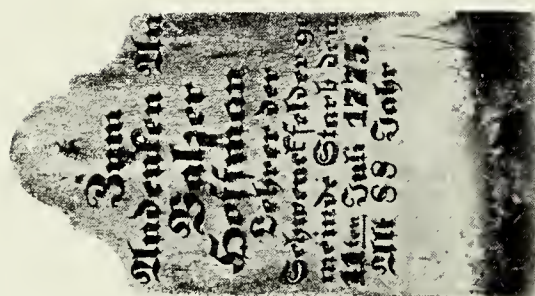 Zum
Andenken An
Balzer
Hoffman
Lehrer der
Schwenckfelder ge
meinde Starb den
11ten Juli 1775.
Alt 88 Jahr